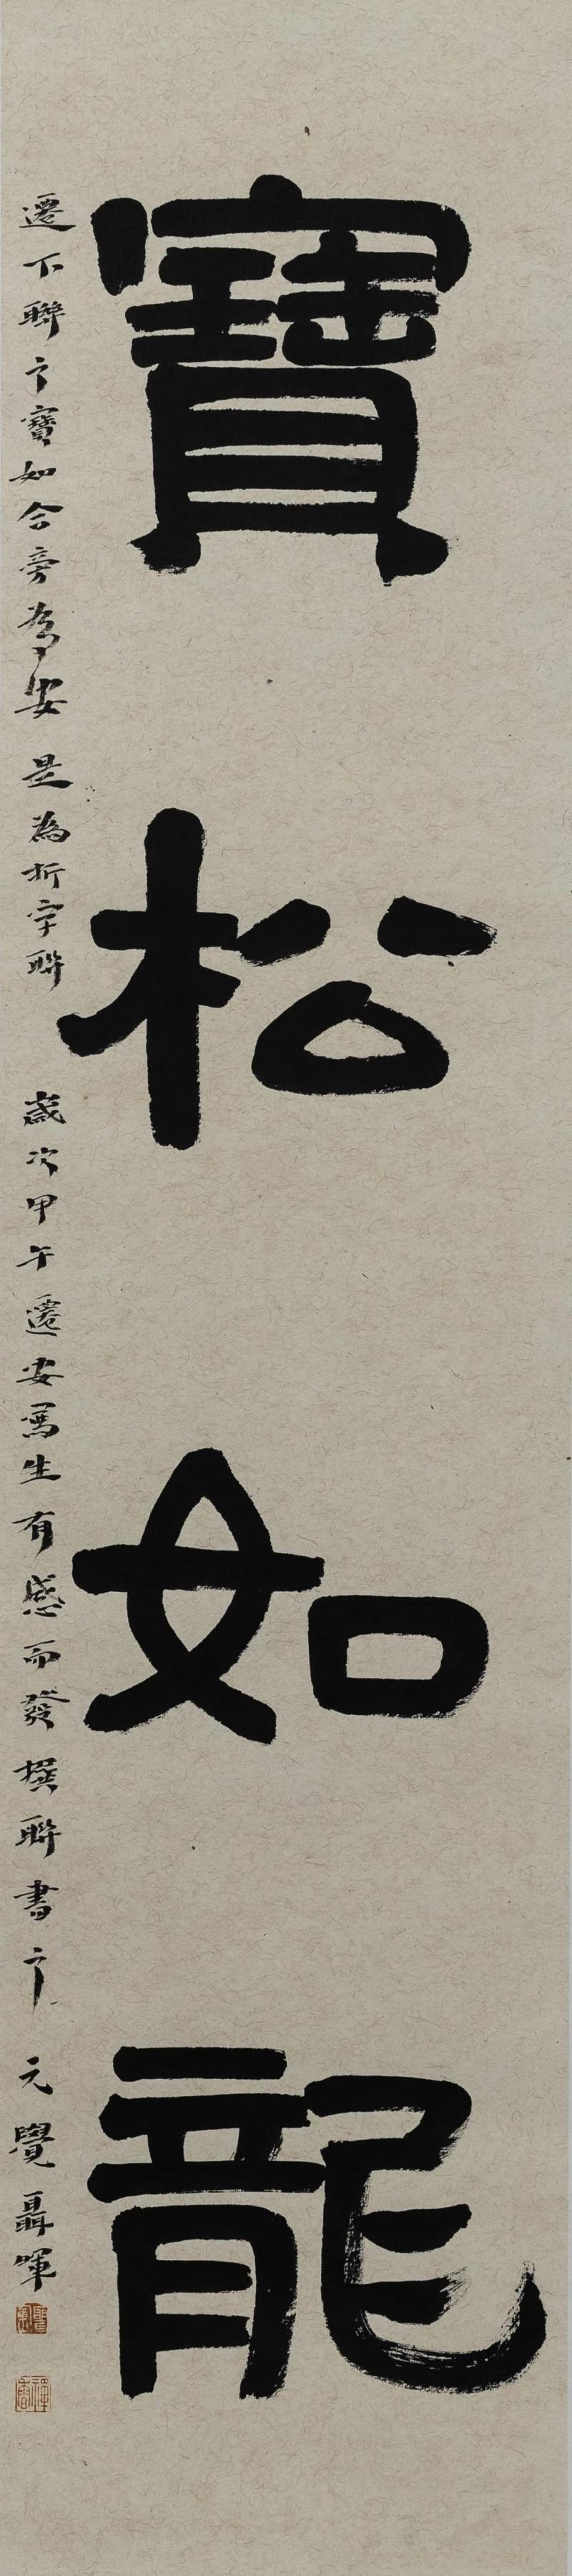 寶松如龍
遷下聯之寶如合旁為安是為析字聯歲次甲午遷安寫生有感而發撰聯書之元覺聶暉